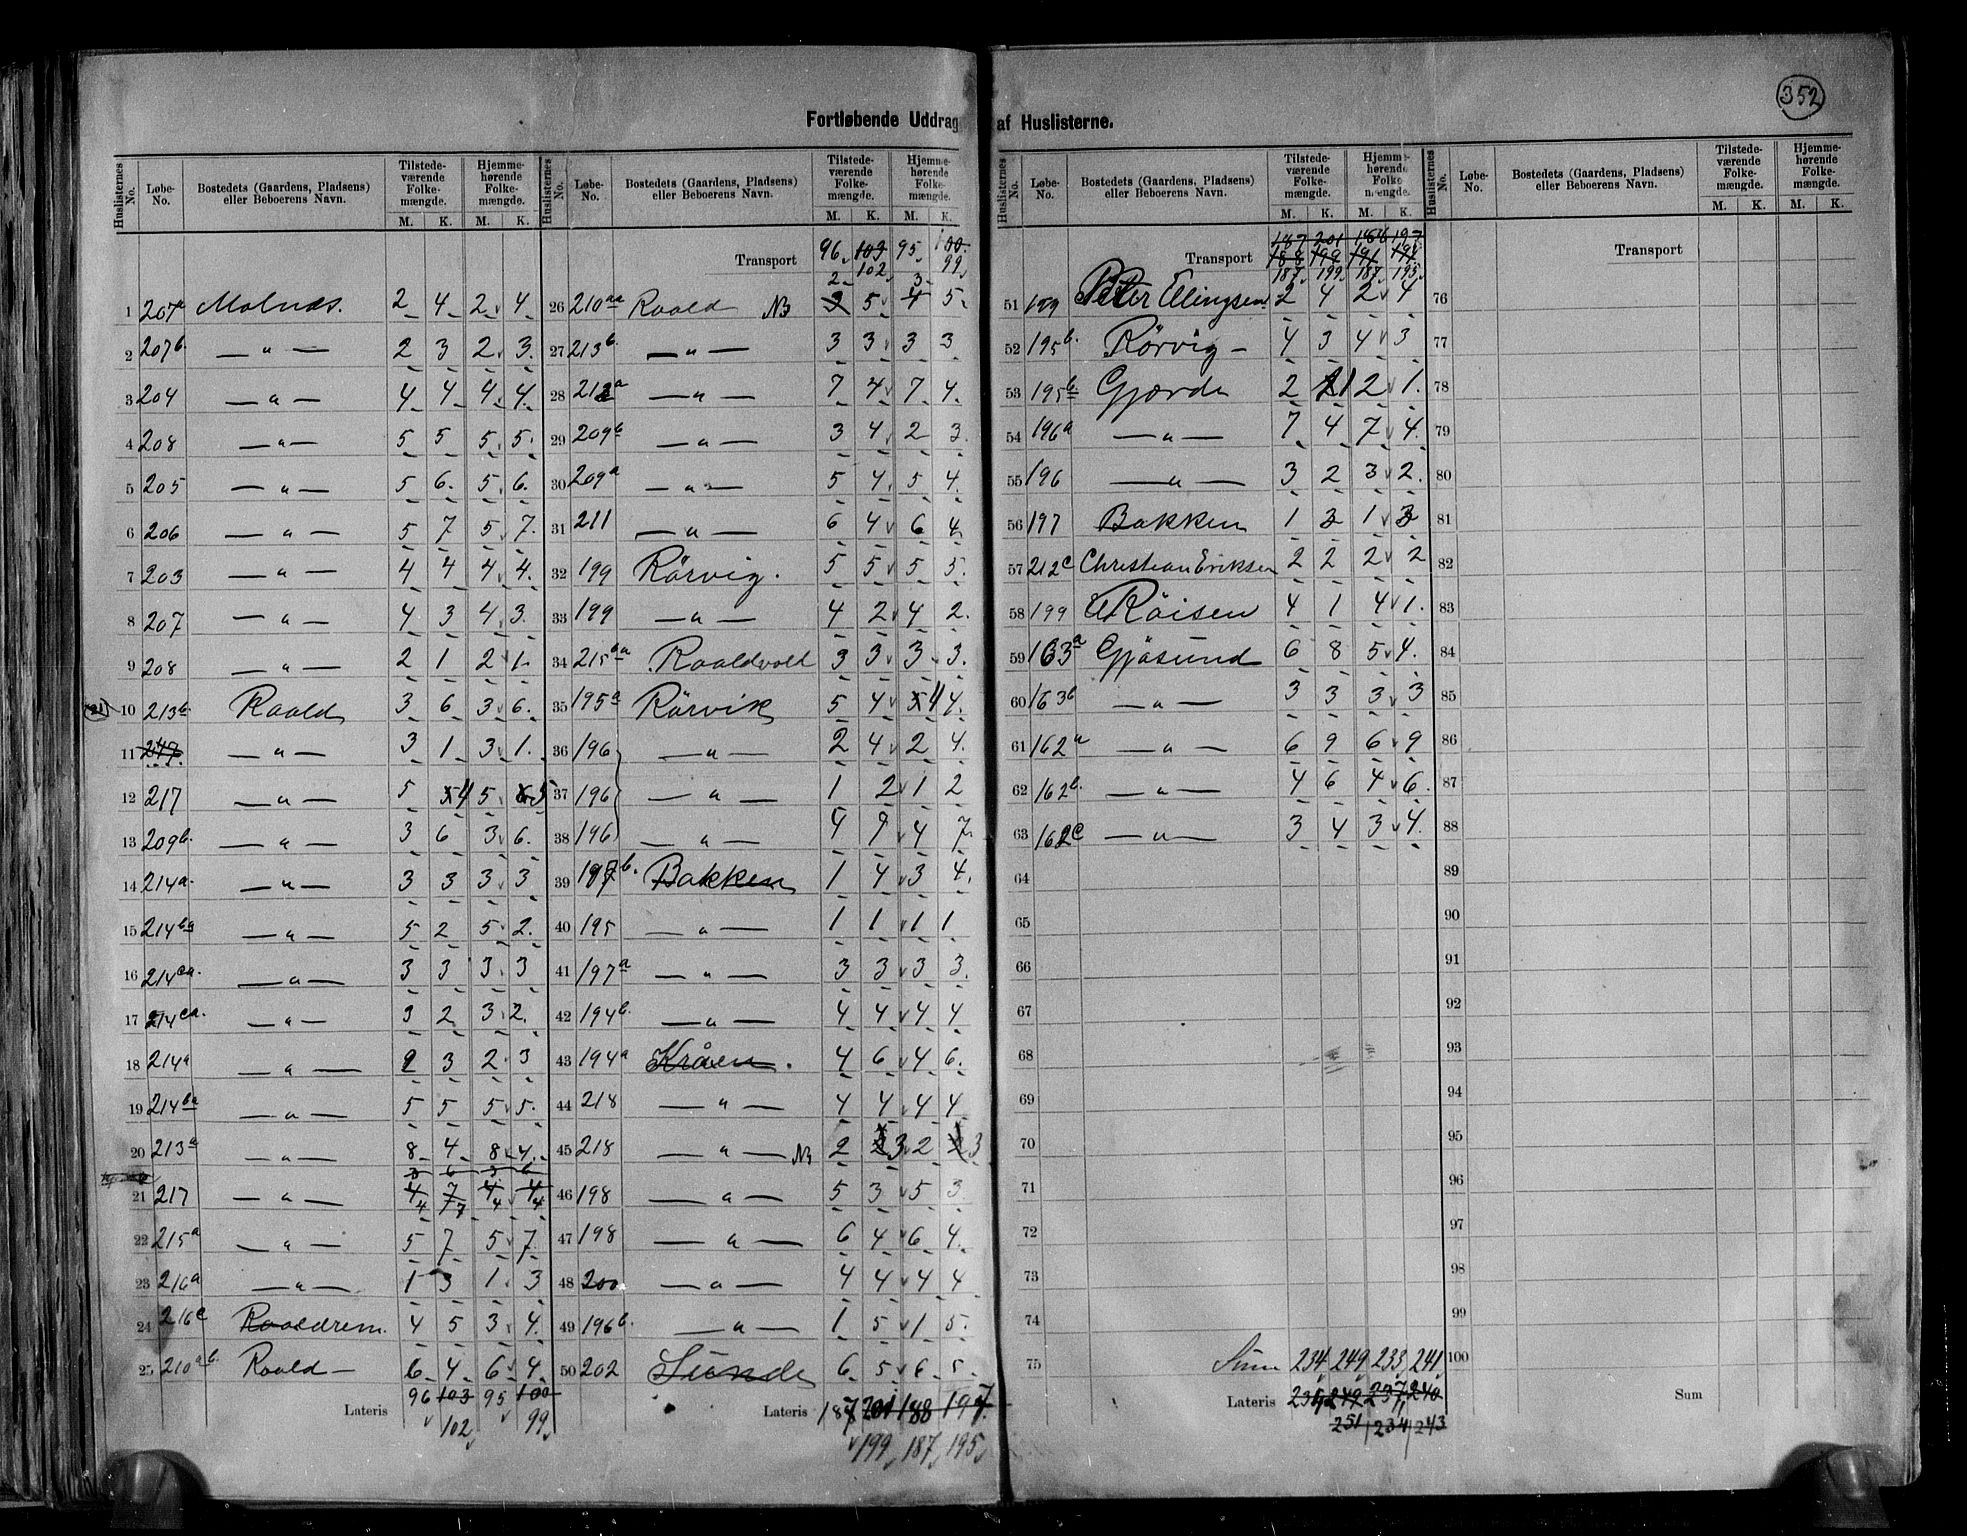 352
Fortløbende Uddrag af Huslisterne.
Huslisternes No. Løbe-No. Bostedets (Gaardens, Pladsens) eller Beboerens Navn. Tilstedeværende Folkemængde. M. K. Hjemmehørende Folkemængde. M. K.
1 207a Molnæs. 2 4 2 4.
2 207b. — " — 2 3 2 3.
3 204 — " — 4 4 4 4.
4 208 — " — 5 5 5 5.
5 205 — " — 5 6. 5 6.
6 206 — " — 5 7 5 7.
7 203 — " — 4 4 4 4.
8 207 — " — 4 3 4 3.
9 208 — " — 2 1 2 1.
10 213b Roald 3 6 3 6.
11 217 — " — 3 1 3 1.
12 217 — " — 5 4 5 5
13 209b. — " — 3 6 3 6.
14 214a. — " — 3 3 3 3
15 214ba — " — 5 2 5 2.
16 214ca. — " — 3 3 3 3
17 214ca. — " — 3 2 3 2.
18 214a — " — 2 3 2 3
19 214ba — " — 5 5 5 5.
20 213a — " — 8 4 8 4.
21 217 — " — 4 7 4 4
22 215a — " — 5 7 5 7.
23 216a — " — 1 3 1 3
24 216c Roaldrem. 4 5 3 4.
25 210ab. Roald — 6 4 6 4.
Lateris 96 103 95 100
102 99
Huslisternes No. Løbe-No. Bostedets (Gaardens, Pladsens) eller Beboerens Navn. Tilstedeværende Folkemængde. M. K. Hjemmehørende Folkemængde. M. K.
Transport 96 103 95 100
102 99
2 3
26 210aa Roald NB 3 5 4 5.
27 213b. — " — 3 3 3 3
28 212a — " — 7 4 7 4.
29 209b — " — 3 4 2 3.
30 209a — " — 5 4 5 4.
31 211 — " — 6 4 6 4
32 199 Rörvig. 5 5 5 5.
33 199 — " — 4 2 4 2.
34 215aa Roaldvold 3 3 3 3.
35 195a Rörvik 5 4 4 4.
36 196 — " — 2 4 2 4.
37 196 — " — 1 2 1 2
38 196 — " — 4 9 4 7.
39 197b. Bakken 1 4 3 4.
40 195 — " — 1 1 1 1
41 197a — " — 3 3 3 3.
42 194b. — " — 4 4 4 4
43 194a Kråen. 4 6 4 6.
44 218 — " — 4 4 4 4
45 218 — " — NB 2 3 2 3
46 198 — " — 5 3 5 3.
47 198 — " — 6 4 6 4.
48 200 — " — 4 4 4 4
49 196b. — " — 1 5 1 5.
50 202 Sunde 6 5 6 5.
Lateris 187 201 188 197.
199 187 195
Huslisternes No. Løbe-No. Bostedets (Gaardens, Pladsens) eller Beboerens Navn. Tilstedeværende Folkemængde. M. K. Hjemmehørende Folkemængde. M. K.
187 201 188 197
Transport
187 199 187 195
51 199 Peter Elingsen 2 4 2 4
52 195b. Rörvig — 4 3 4 3
53 195b. Gjærde 2 1 2 1.
54 196a — " — 7 4 7 4.
55 196 — " — 3 2 3 2.
56 197 Bakken 1 3 1 3
57 212c Christian Eriksen 2 2 2 2
58 199 Röisen 4 1 4 1.
59 163a Gjösund 6 8 5 4.
60 163b — " — 3 3 3 3
61 162a — " — 6 9 6 9
62 162b. — " — 4 6 4 6.
63 162c — " — 3 4 3 4.
64
65
66
67
68
69
70
71
72
73
74
75 Sum 234 249 233 241
Lateris 235 249 237 240
251 234 243
Huslisternes No. Løbe-No. Bostedets (Gaardens, Pladsens) eller Beboerens Navn. Tilstedeværende Folkemængde. M. K. Hjemmehørende Folkemængde. M. K.
Transport
76
77
78
79
80
81
82
83
84
85
86
87
88
89
90
91
92
93
94
95
96
97
98
99
100
Sum